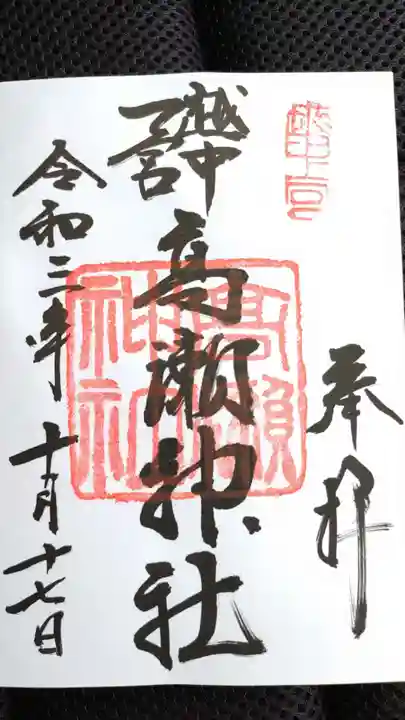 奉拝
越中
一宮
高瀬神社
高瀬
神社
令和三年十月十七日